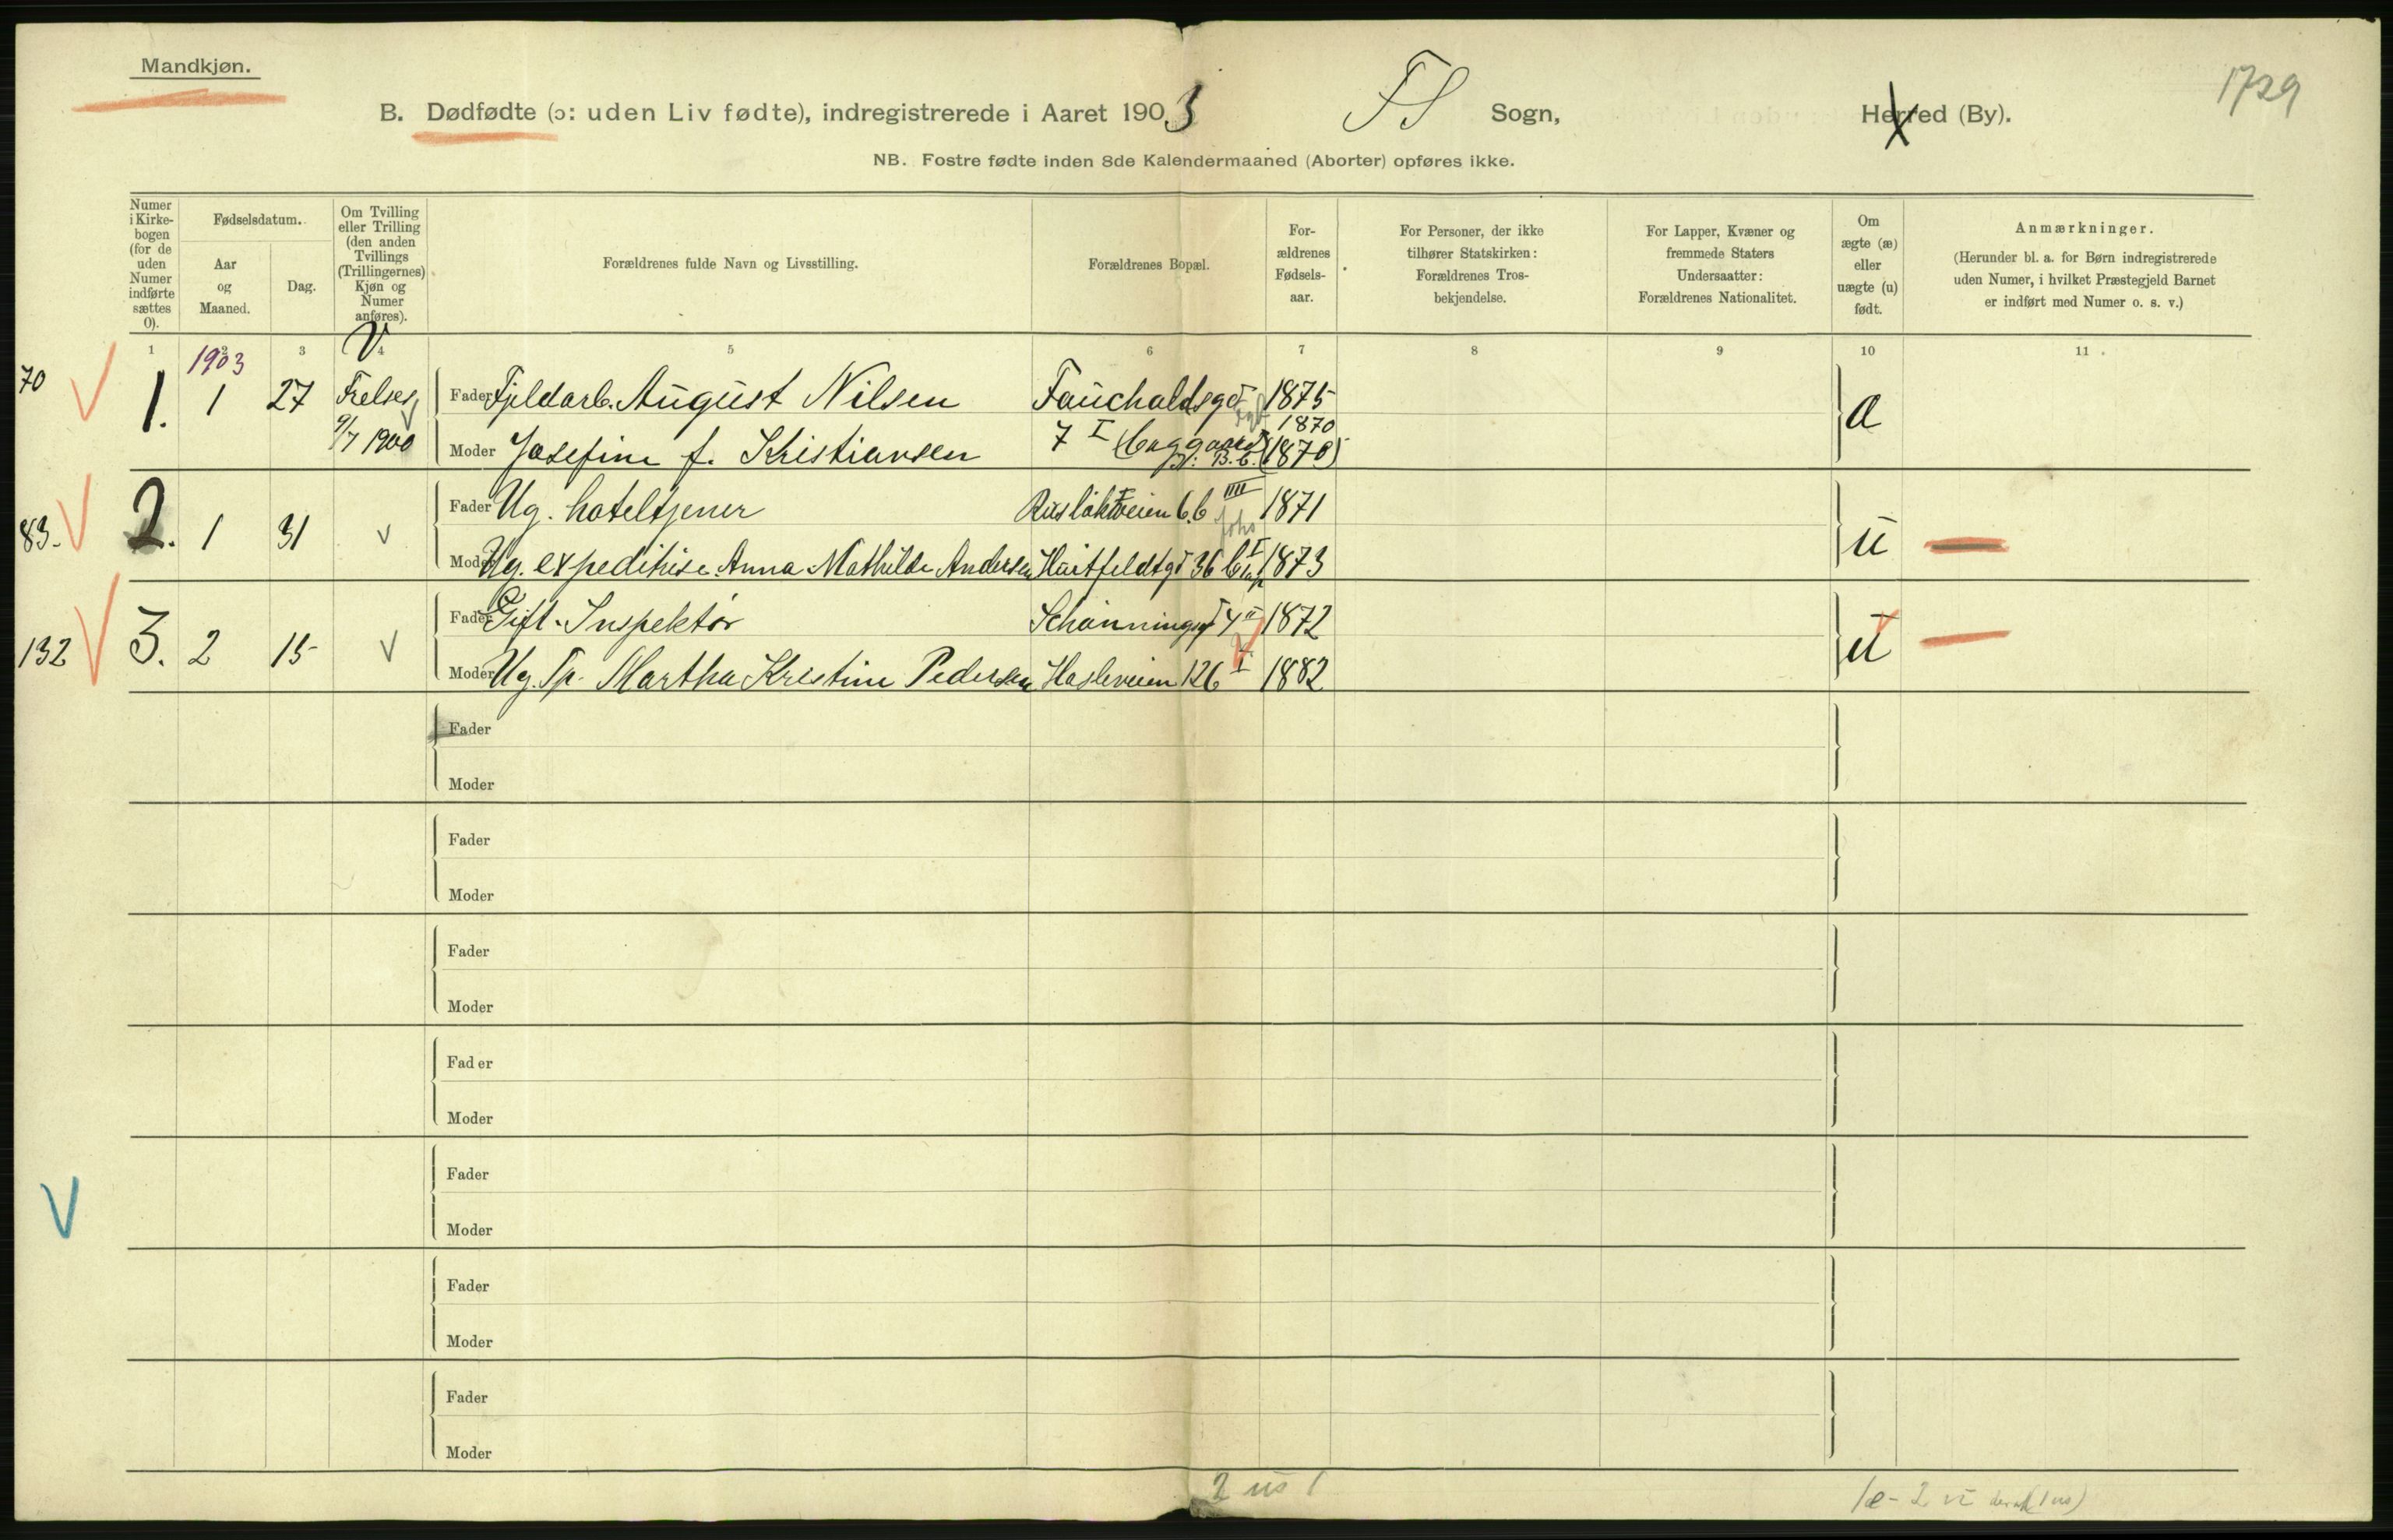 Mandkjøn.
1729
B. Dødfødte (ɔ: uden Liv fødte), indregistrerede i Aaret 1903 FS Sogn, Herred (By).
NB. Fostre fødte inden 8de Kalendermaaned (Aborter) opføres ikke.
Numer i Kirkebogen (for de uden Numer indførte sættes 0).
Fødselsdatum.
Aar og Maaned.
Dag.
Om Tvilling eller Trilling (den anden Tvillings (Trillingernes) Kjøn og Numer anføres).
Forældrenes fulde Navn og Livsstilling.
Forældrenes Bopæl.
Forældrenes Fødselsaar.
For Personer, der ikke tilhører Statskirken: Forældrenes Trosbekjendelse.
For Lapper, Kvæner og fremmede Staters Undersaatter: Forældrenes Nationalitet.
Om ægte (æ) eller uægte (u) født.
Anmærkninger.
(Herunder bl. a. for Børn indregistrerede uden Numer, i hvilket Præstegjeld Barnet er indført med Numer o. s. v.)
1 2 3 4 5 6 7 8 9 10 11
1903
70 1. 1 27 Frelses 9/7 1900
Fader Fjeldarb. August Nilsen Fauchaldsgt 1875
1870
Moder Josefine f. Kristiansen 7 I (baggaard) (1870)
æ
83. 2. 1 31
Fader Ug. hoteltjener Rusløkveien 6b IIII 1871
Moder Ug. expeditrise Anna Mathilde Andersen Huitfeldtgt 36 b I 1873
u
132 3. 2 15
Fader Gift. Inspektør Schønningsgt 4 II 1872
Moder Ug. Tp. Martha Kristine Pedersen Hasleveien 126 I 1882
u
Fader
Moder
Fader
Moder
Fader
Moder
Fader
Moder
Fader
Moder
Fader
Moder
Fader
Moder
2 us 1